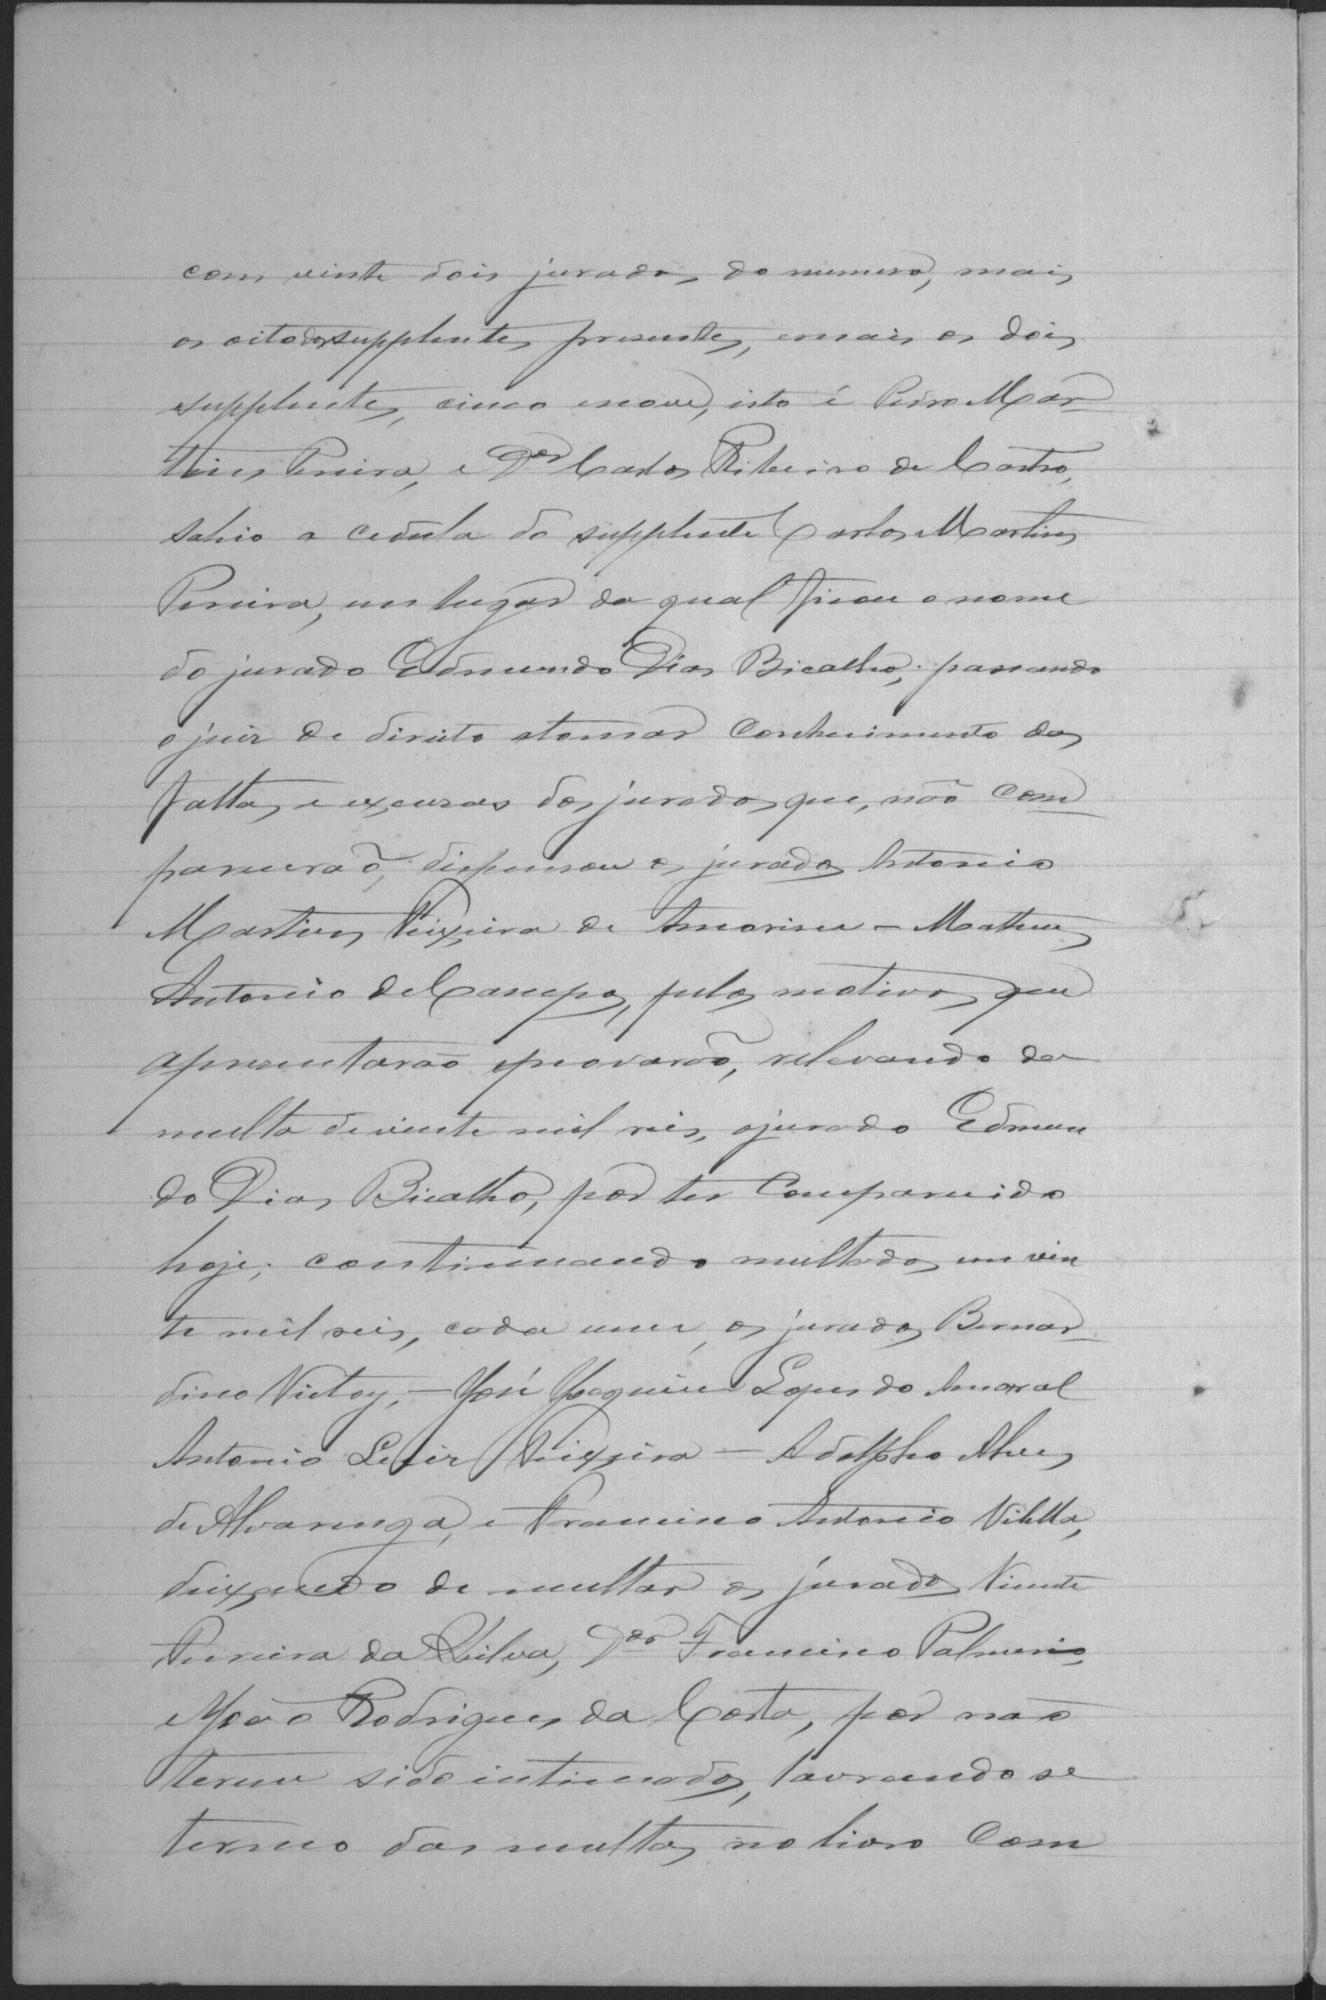 com vinte dois jurados do numero, mais
os oito dos supplentes presentes, e mais os dois
supplentes, cinco e nove, isto é Pedro Mar-
tins Pereira, e Dor Carlos Ribeiro de Castro,
sahio a cedula do supplente Carlos Martins
Pereira, em lugar da qual ficou o nome
do jurado Edmundo Dias Bicalho; passando
o juiz de direito a tomar conhecimento das
faltas e excusas dos jurados que, não com-
parecerão, dispensou os jurados Antonio
Martins Teixeira de Amorim - Matheus
Antonio de Campos, pelos motivos que
apresentarão e provarão, relevando da
multa de vinte mil reis, o jurado Edmun
do Dias Bicalho, por ter comparecido
hoje; continuando multados em vin
te mil reis, cada um, os jurados Bernar-
dino Victoy, - José Joaquim Lopes do Amaral
Antonio Luiz Teixeira - Adolpho Alves
de Alvarenga, e Francisco Antonio Vilella,
deixando de multar os jurados Vicente
Pereira da Silva, Dor Francisco Palmerio,
e João Rodrigues da Costa, por não
terem sido intimados, lavrando se
termo das multas no livro com